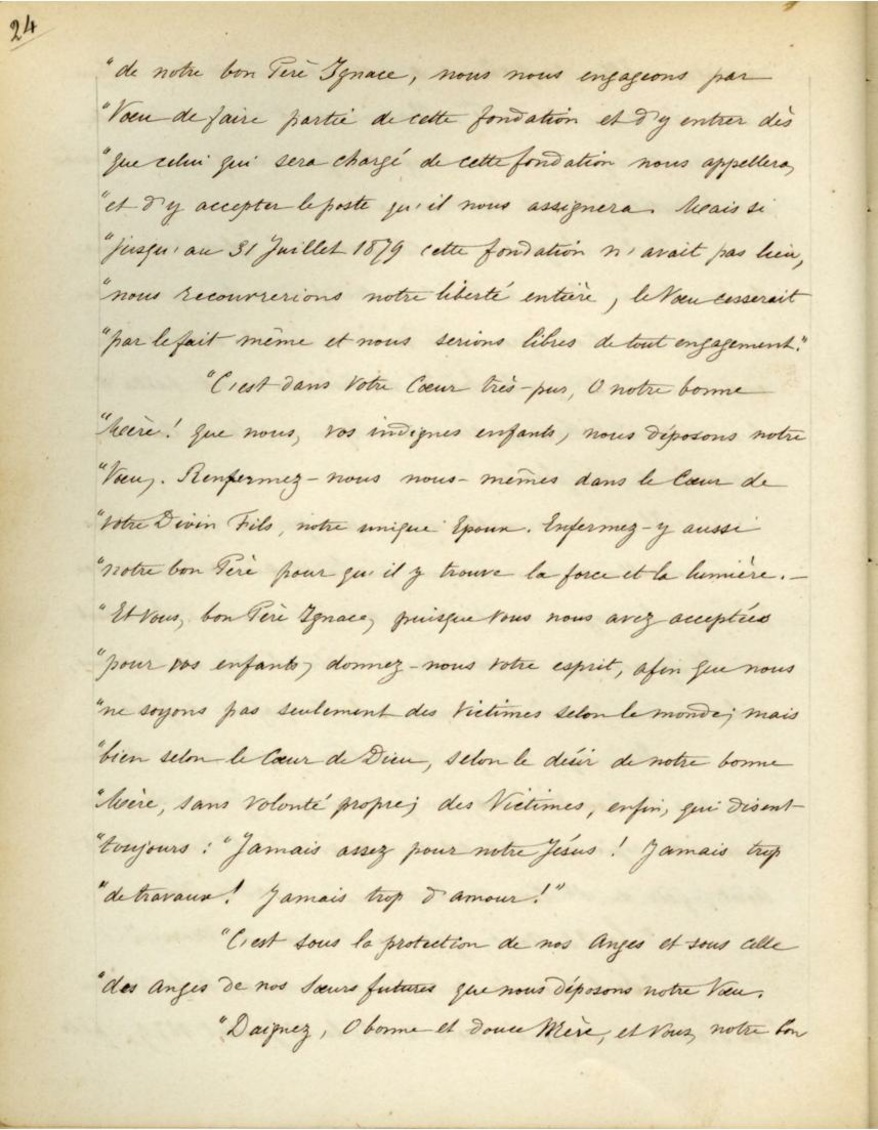 24
"de notre bon Père Ignace, nous nous engageons par
"Vœu de faire partie de cette fondation et d'y entrer dès
"que celui qui sera chargé de cette fondation nous appellera,
"et d'y accepter le poste qu'il nous assignera. Mais si
"jusqu'au 31 Juillet 1879 cette fondation n'avait pas lieu,
"nous recouvrerions notre liberté entière, le Vœu cesserait
"par le fait même et nous serions libres de tout engagement."
"C'est dans votre Cœur très-pur, O notre bonne
"Mère! que nous, vos indignes enfants, nous déposons notre
"Vœu,. Renfermez-nous nous-mêmes dans le Cœur de
"votre Divin Fils, notre unique Epoux. Enfermez-y aussi
"notre bon Père pour qu'il y trouve la force et la lumière.-
"Et Vous, bon Père Ignace, puisque Vous nous avez acceptées
"pour vos enfants, donnez-nous votre esprit, afin que nous
"ne soyons pas seulement des Victimes selon le monde; mais
"bien selon le Cœur de Dieu, selon le désir de notre bonne
"Mère, sans volonté propre; des Victimes, enfin, qui disent
"toujours : "Jamais assez pour notre Jésus! Jamais trop
"de travaux! Jamais trop d'amour!"
"C'est sous la protection de nos Anges et sous celle
"des Anges de nos Sœurs futures que nous déposons notre Vœu.
"Daignez, O bonne et douce Mère, et Vous, notre bon